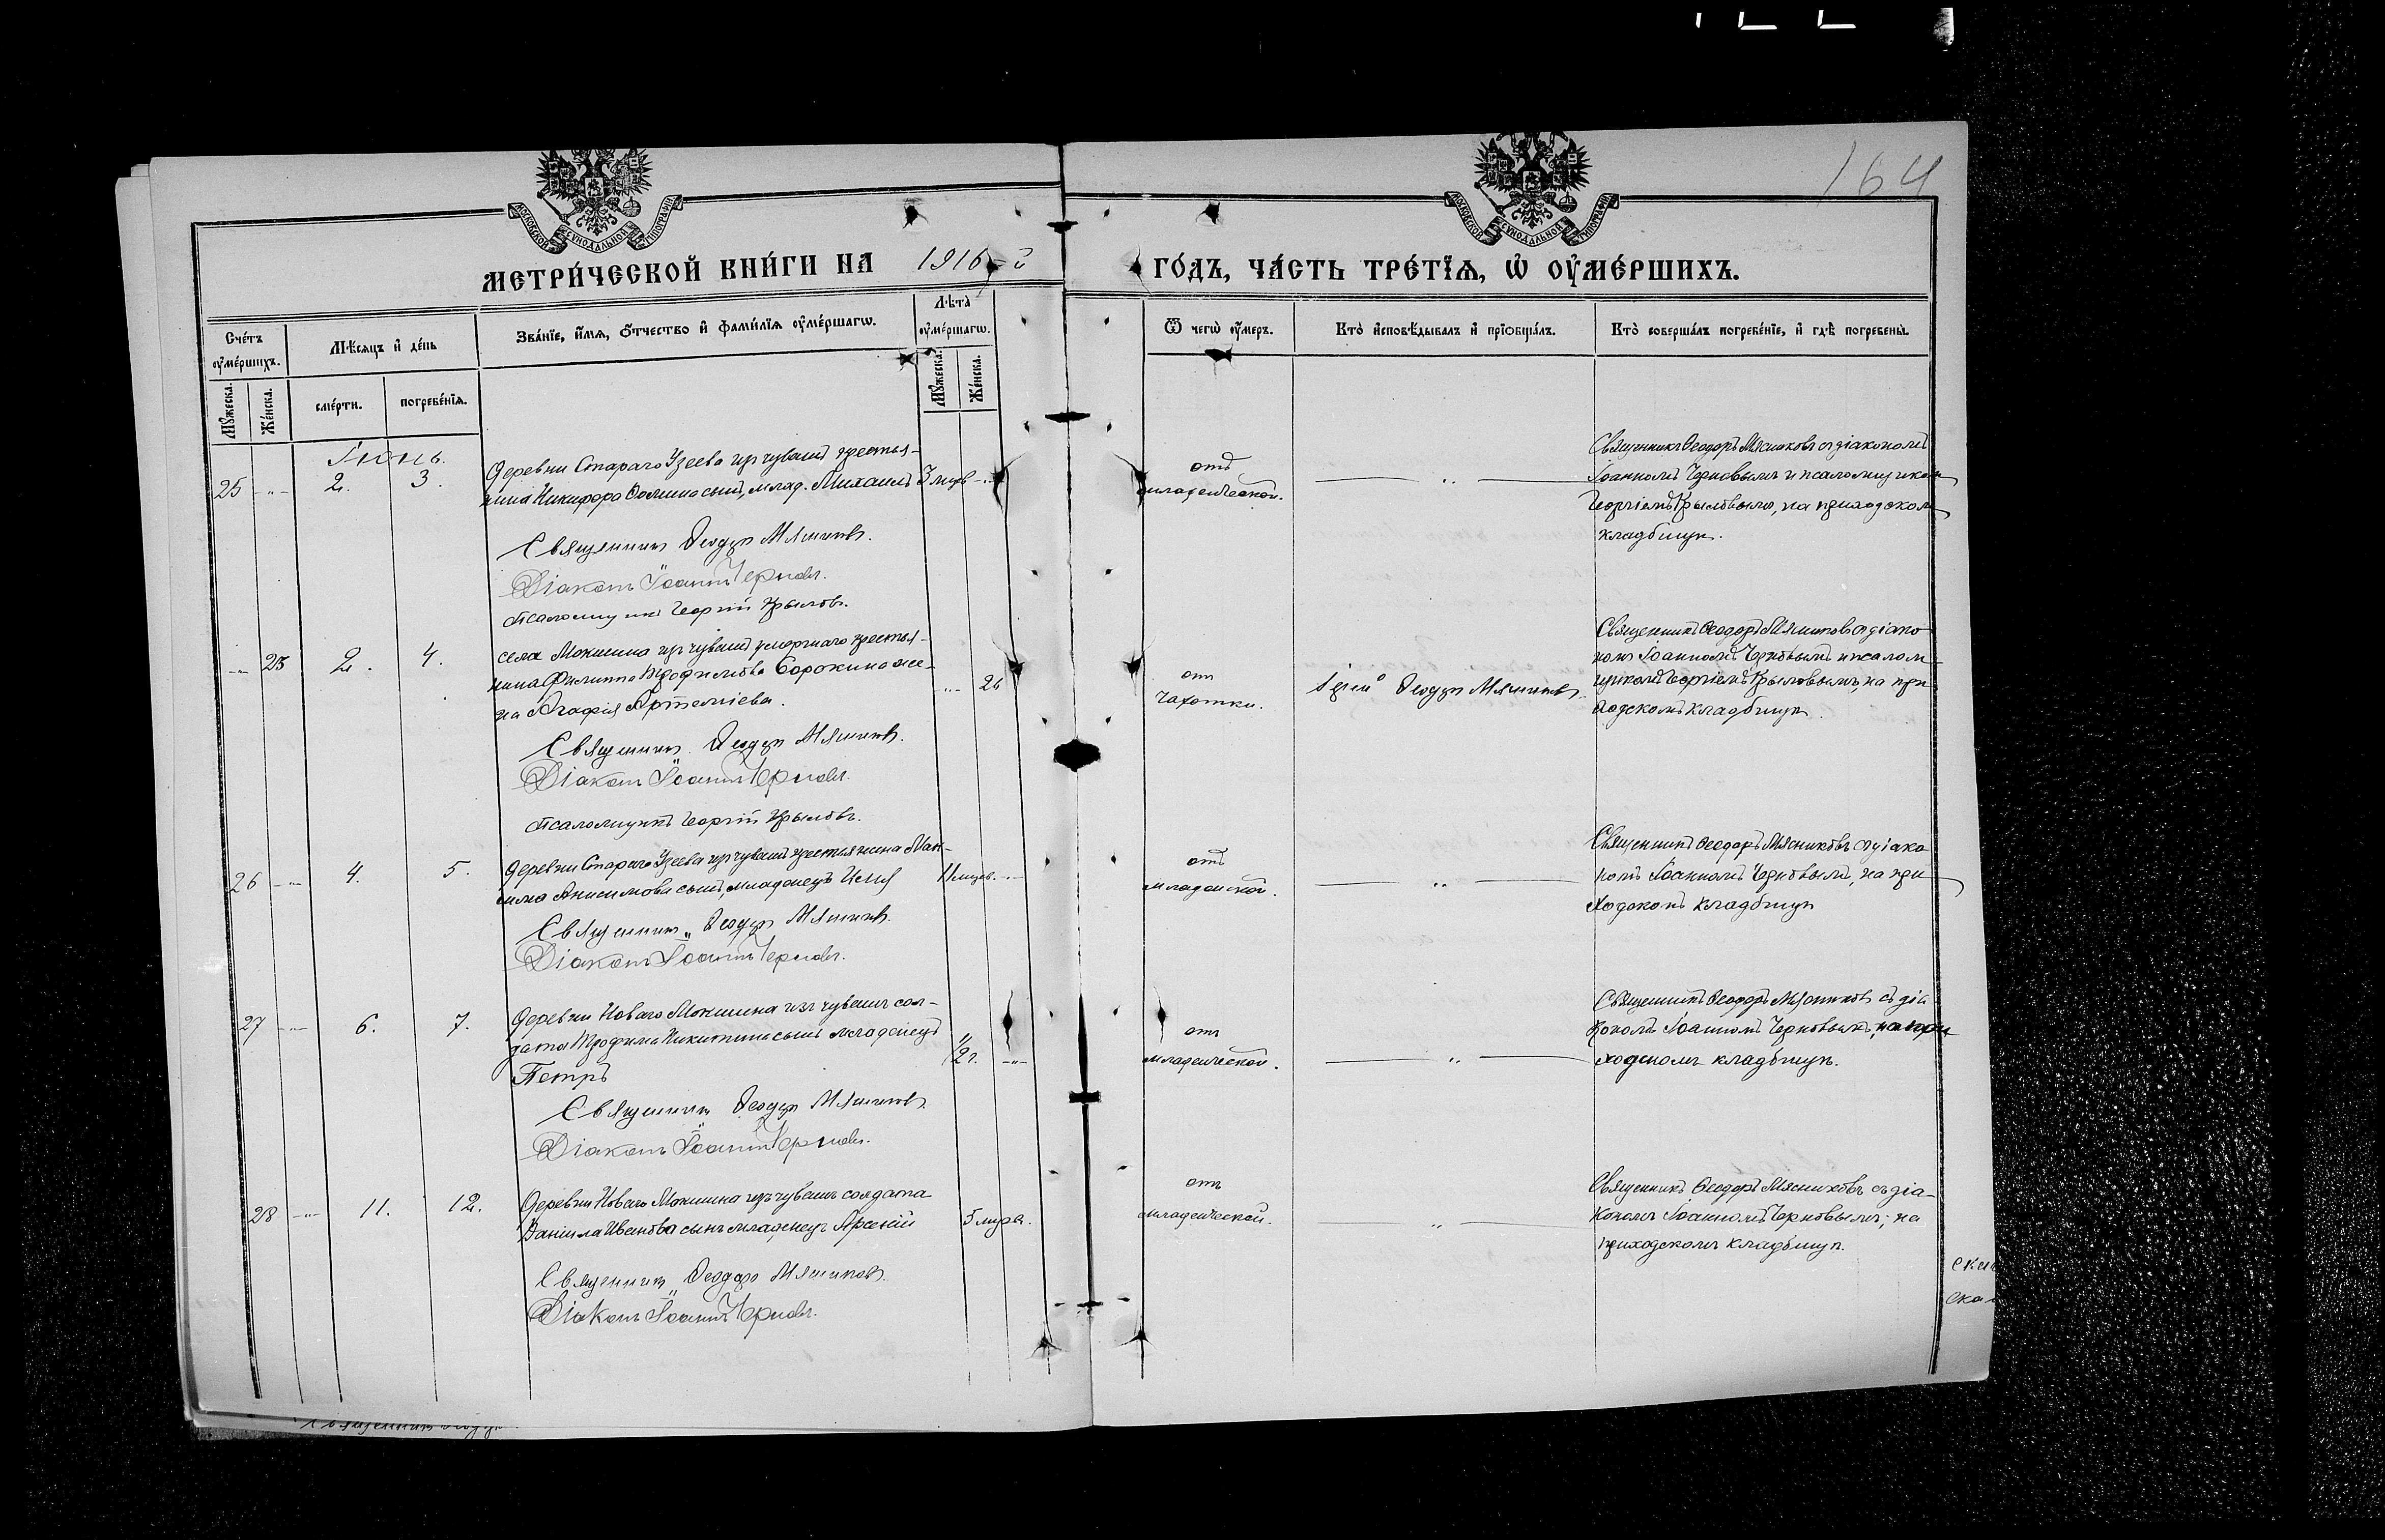 164
МОСКОВСКОЙ СУНОДАЛЬНОЙ ТИПОГРАФІИ
МОСКОВСКОЙ СУНОДАЛЬНОЙ ТИПОГРАФІИ
МЕТРИ́ЧЕСКОЙ КНИ́ГИ НА 1916-й
ГО́ДЪ, ЧА́СТЬ ТРЕ́ТЇѦ, Ѡ҆ ОУ҆МЕ́РШИХЪ.
Сче́тъ оу҆ме́ршихъ.
Мѣ́сѧцъ и҆ де́нь
Зва́нїе, и҆́мѧ, о҆́тчество и҆ фами́лїѧ оу҆ме́ршагѡ.
Лѣ́та оу҆ме́ршагѡ.
Ѿ чегѡ̀ оу҆́меръ.
Кто̀ и҆сповѣ́дывалъ и҆ прїѻбща́лъ.
Кто̀ соверша́лъ погребе́нїе, и҆ гдѣ̀ погребены̀.
Мꙋ́жеска.
Же́нска.
сме́рти.
погребе́нїѧ.
Мꙋ́жеска.
Же́нска.
Іюнь.
25 -"- 2. 3.
Деревни Стараго Узеева изъ чувашъ крестья-
нина Никифора Фомина сынъ, млад. Михаилъ 3 мѣс
Священникъ Ѳеодоръ Мясниковъ.
Діаконъ Іоаннъ Черновъ.
Псаломщикъ Георгій Крыловъ.
отъ
младенческой.
Священникъ Ѳеодоръ Мясниковъ съ діакономъ
Іоанномъ Черновымъ и псаломщикомъ
Георгіемъ Крыловымъ, на приходскомъ
кладбищѣ.
-"- 23 2. 4.
села Мокшина изъ чувашъ умершаго крестья-
нина Филиппа Трофимова Сорокина же-
на Агафія Артеміева. -"- 26
Священникъ Ѳеодоръ Мясниковъ.
Діаконъ Іоаннъ Черновъ.
Псаломщикъ Георгій Крыловъ.
отъ
чахотки.
Іерей Ѳеодоръ Мясниковъ
Священникъ Ѳеодоръ Мясниковъ съ діако
номъ Іоанномъ Черновымъ и псалом-
щикомъ Георгіемъ Крыловымъ, на при
ходскомъ кладбищѣ.
26 -"- 4. 5.
Деревни Стараго Узеева изъ чувашъ крестьянина Мак-
сима Анисимова сынъ, младенецъ Илія 11 мѣсяц. -"-
Священникъ Ѳеодоръ Мясниковъ.
Діаконъ Іоаннъ Черновъ.
отъ
младенской.
Священникъ Ѳеодоръ Мясниковъ съ діако
номъ Іоанномъ Черновымъ, на при
ходскомъ кладбищѣ
27 -"- 6. 7.
Деревни Новаго Мокшина изъ чувашъ сол-
дата Трофима Никитина сынъ младенецъ
Петръ 1/2 г. -"-
Священникъ Ѳеодоръ Мясниковъ
Діаконъ Іоаннъ Черновъ.
отъ
младенческой.
Священникъ Ѳеодоръ Мясниковъ съ діа
кономъ Іоанномъ Черновымъ, на при
ходскомъ кладбищѣ.
28 -"- 11. 12.
Деревни Новаго Мокшина изъ чувашъ солдата
Даніила Иванова сынъ младенецъ Арсеній 5 мѣся.
Священникъ Ѳеодоръ Мясниковъ.
Діаконъ Іоаннъ Черновъ.
отъ
младенческой.
Священникъ Ѳеодоръ Мясниковъ съ діа-
кономъ Іоанномъ Черновымъ, на
приходскомъ кладбищѣ.